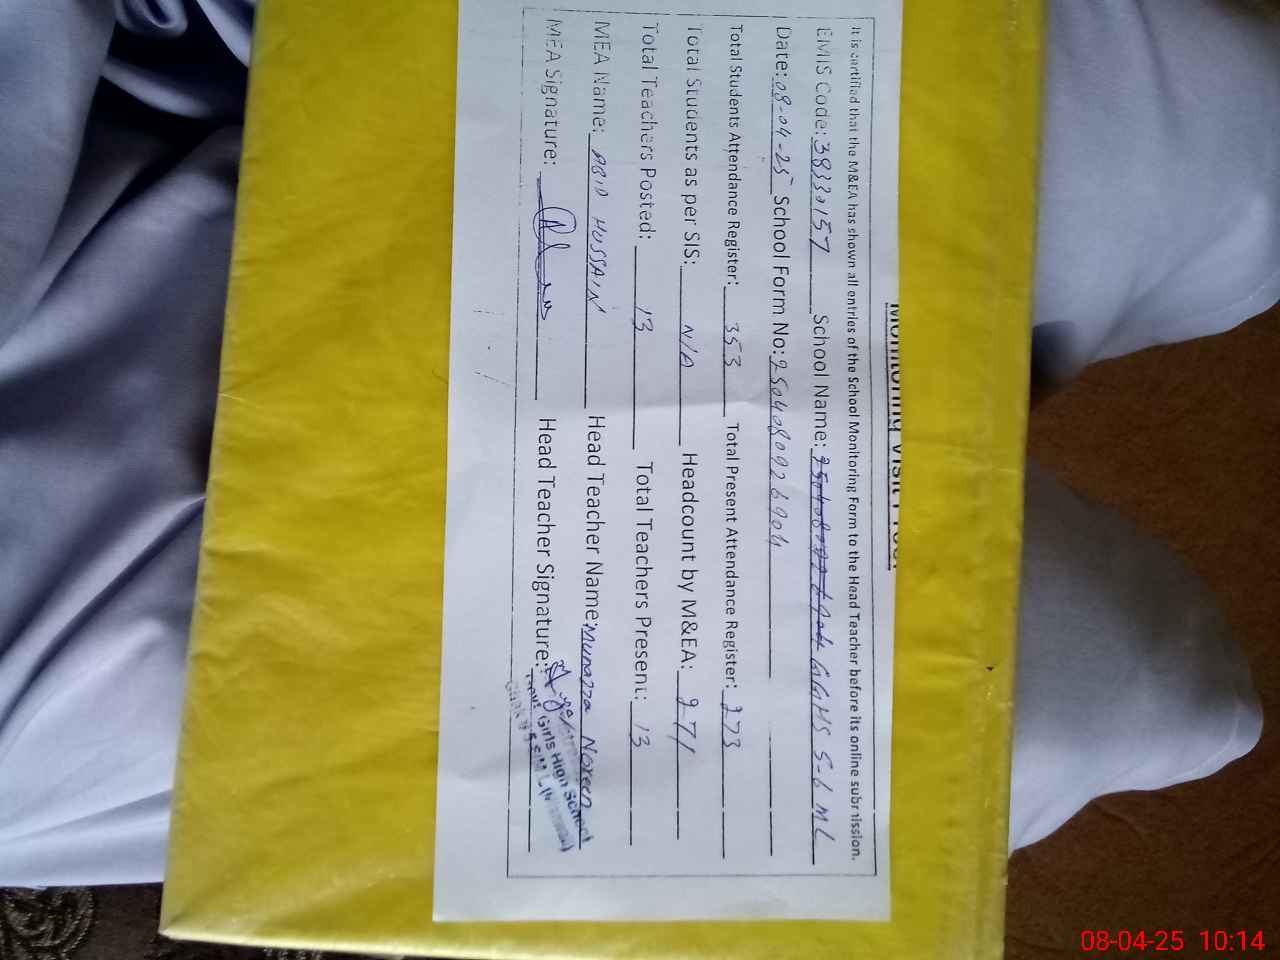 Monitoring Visit
It is certified that the M&EA has shown all entries of the School Monitoring Form to the Head Teacher before its online submission.
EMIS Code: 38330157 School Name: GGHS 5-6 ML
Date: 08-04-25 School Form No: 2504080926904
Total Students Attendance Register: 353 Total Present Attendance Register: 273
Total Students as per SIS: N/A Headcount by M&EA: 271
Total Teachers Posted: 13 Total Teachers Present: 13
MEA Name: ABID HUSSAIN Head Teacher Name: Munazza Noreen
MEA Signature: Head Teacher Signature:
Girls High School
08-04-25 10:14